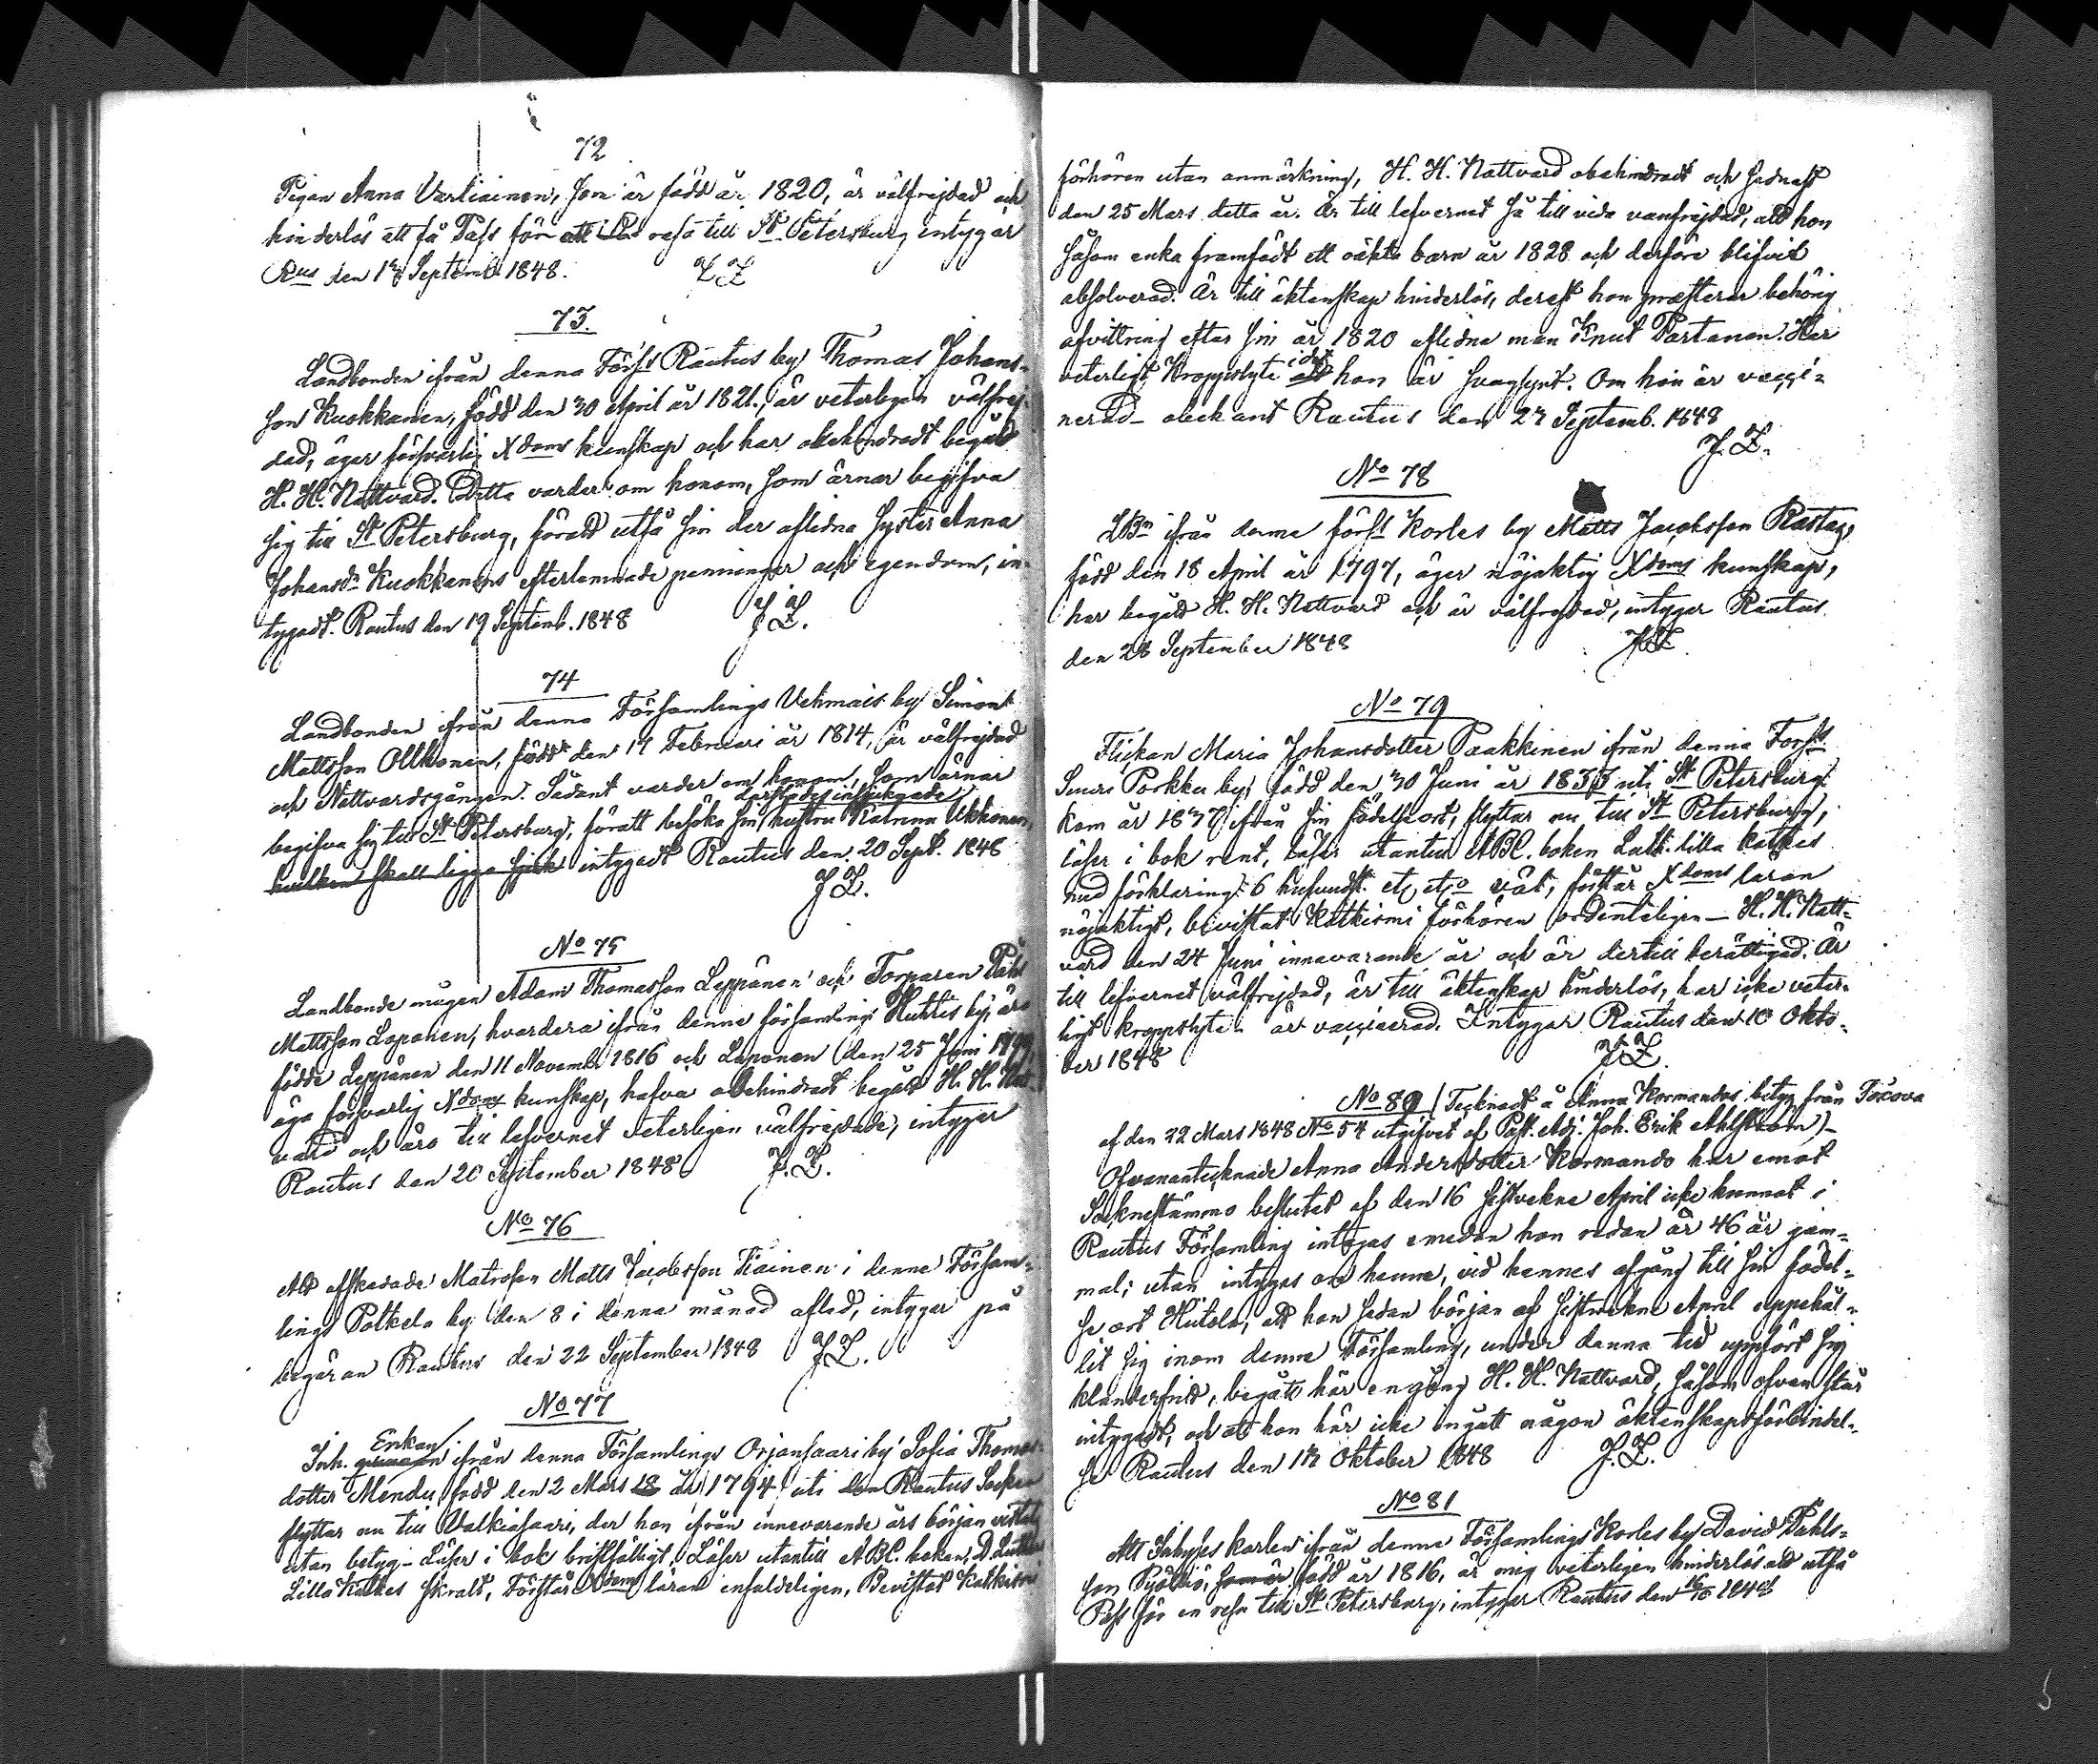 72
Pigan Anna Vartiainen, som är född år 1820, är välfrejdad och
hinderlös att få Pass för att resa till St Petersburg intygar
Rus den 17 Septemb. 1848. J Z
73.
Landbonden ifrån denna Förs:s Rautus by Thomas Johans-
son Kuokkanen, född den 30 April år 1821, är veterligen välfrej-
dad, äger försvarlig Xdoms kunskap och har obehindradt begått
H. H. Nattvard. Detta varder om honom, som ärnar begifva
sig till St Petersburg, föratt utfå sin der aflidna syster Anna
Johansdr Kuokkanens efterlemnade penningar och egendom, in-
tygadt. Rautus den 19 Septemb. 1848 J Z.
74
Landbonden ifrån denna Församlings Vehmais by Simon
Mattsson Ollkonen, född den 17 Februari år 1814, är välfrejdad
och Nattvardsgången. Sådant varder om honom, som ärnar
derstädes insjuknade
begifva sig till St Petersburg, föratt besöka sin hustru Katrina Ukkonen,
hvilken skall ligga sjuk intygadt Rautus den 20 Sept. 1848
J Z.
No 75
Landbonde mågen Adam Thomasson Leppänen och Torparen Påhl
Mattsson Loponen, hvardera ifrån denne församlings Huhtis by, äro
födde Leppänen den 11 Novembr 1816 och Loponen den 25 Juni
äga försvarlig Xdoms kunskap, hafva obehindradt begått H. H. Natt-
vard och äro till lefvernet veterligen välfrejdade, intygar
Rautus den 20 September 1848 J. Z.
No 76
Att afskedade Matrosen Matts Jacobsson Kiainen i denne Försam-
lings Potkela by den 8 i denna månad afled, intygar på
begäran Rautus den 22 September 1848 J Z.
No 77
Enkan
Inh. ifrån denna Församlings Orjansaari by Sofia Thomas-
dotter Mendu, född den 2 Mars 18 år 1794 uti Rautus Socken
flyttar nu till Valkiasaari, der hon ifrån innevarande års början vistats
utan betyg – Läser i bok bristfälligt, Läser utantill ABC. boken, D. Luthers
Lilla Katkes skralt, Förstår Xdoms läran enfaldeligen, Bevistat Katkismi
förhören utan anmärkning, H. H. Nattvard obehindradt och sednast
den 25 Mars detta år. Är till lefvernet så till vida vanfrejdad, att hon
såsom enka framfödt ett oäkta barn år 1828 och derföre blifvit
absolverad. Är till äktenskap hinderlös, derest hon præsterar behörig
afvittring efter sin år 1820 aflidne man Knut Partanen. Har
i det
veterligt kroppslyte att hon är svagsynt. Om hon är vacci-
nerad – obekant Rautus den 27 Septemb. 1848
J. Z.
No 78
LBn ifrån denna förs:s Korles by Matts Jacobsson Rastas,
född den 18 April år 1797, äger nöjaktig Xdoms kunskap,
har begått H. H. Nattvard och är välfrejdad, intygar Rautus
den 28 September 1848 J Z
No 79
Flickan Maria Johansdotter Paakkinen ifrån denna Förs:s
Suuri Porkku by, född den 30 Juni år 1833 uti St Petersburg
kom år 1837 ifrån sin födelseort, flyttar nu till St Petersburg,
läser i bok rent, läser utantill ABC. boken Luth. lilla katkes
med förklaring: 6 hufvudst. etc etc väl, förstår Xdoms läran
nöjaktigt, bevistat Katkismi förhören ordentligen – H. H. Natt-
vard den 24 Juni innevarande år och är dertill berättigad. Är
till lefvernet välfrejdad, är till äktenskap hinderlös, har icke veter-
ligt kroppslyte. är vaccinerad. Intygar Rautus den 10 Okto-
ber 1848 J Z.
No 80 (Tecknadt å Anna Kormandos betyg från Toxova
af den 22 Mars 1848 No 54 utgifvet af Past. Adj. Joh. Erik Ahlström) –
Ofvanantecknade Anna Andersdotter Kormando har emot
Socknestämmo beslutet af den 16 sistvekne April icke kunnat i
Rautus Församling intagas emedan hon redan är 46 år gam-
mal; utan intygas om henne, vid hennes afgång till sin födel-
se ort Hiitola, att hon sedan början af sistvekne April uppehål-
lit sig inom denna Församling, under denna tid uppfört sig
klanderfritt, begått här en gång H. H. Nattvard, såsom ofvan står
intygadt, och att hon här icke ingått någon äktenskapsförbindel-
se Rautus den 12 Oktober 1848 J. Z.
No 81
Att Inhyses karlen ifrån denna Församlings Korles by David Påhls-
son Pyökkö, som är född år 1816, är mig veterligen hinderlös att utfå
Pass för en resa till St Petersburg, intygar Rautus den 16/10 1848